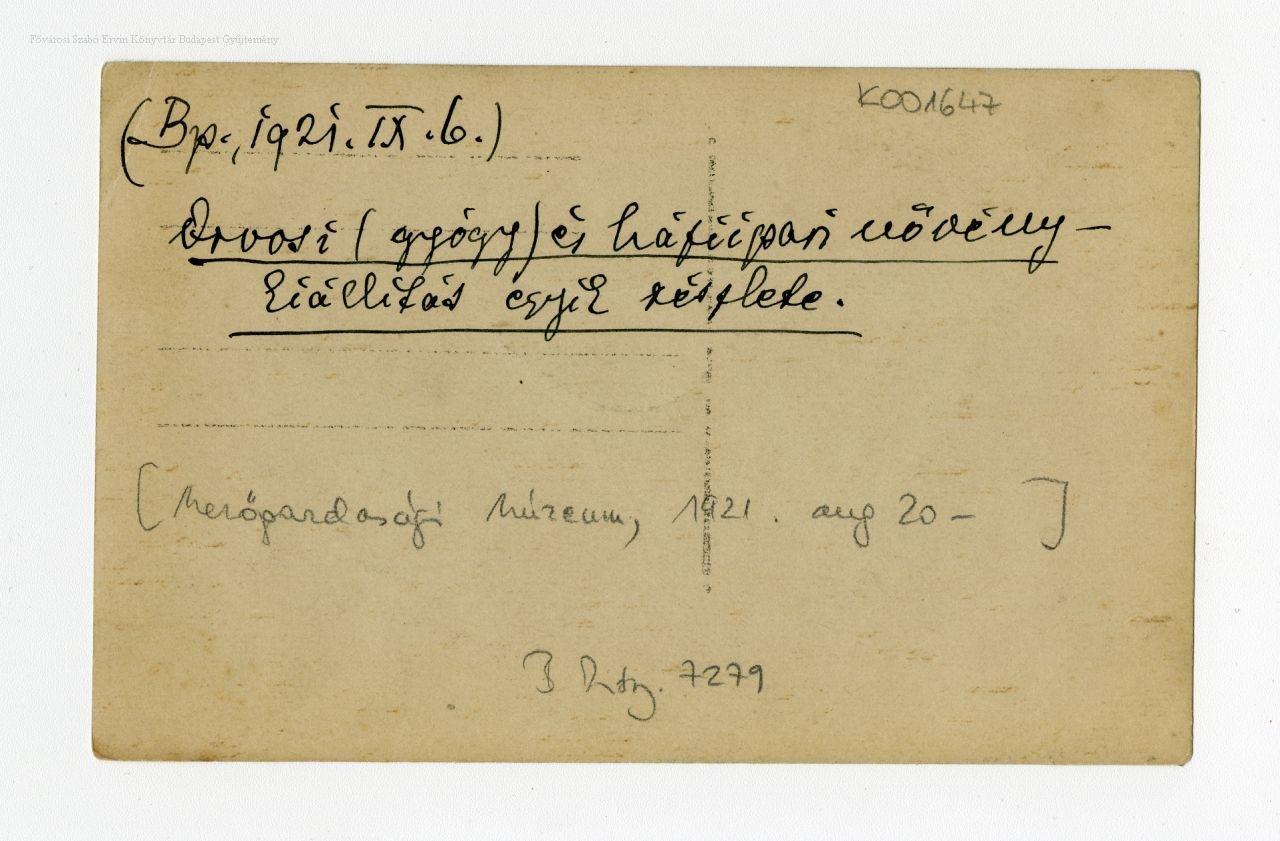 Fővárosi Szabó Ervin Könyvtár Budapest Gyűjtemény
K001647
(Bp., 1921. IX. 6.)
Orvosi (gyógy) és háziipari növény-
kiállitás egyik részlete.
[Mezőgazdasági Múzeum, 1921. aug 20 - ]
B 7279